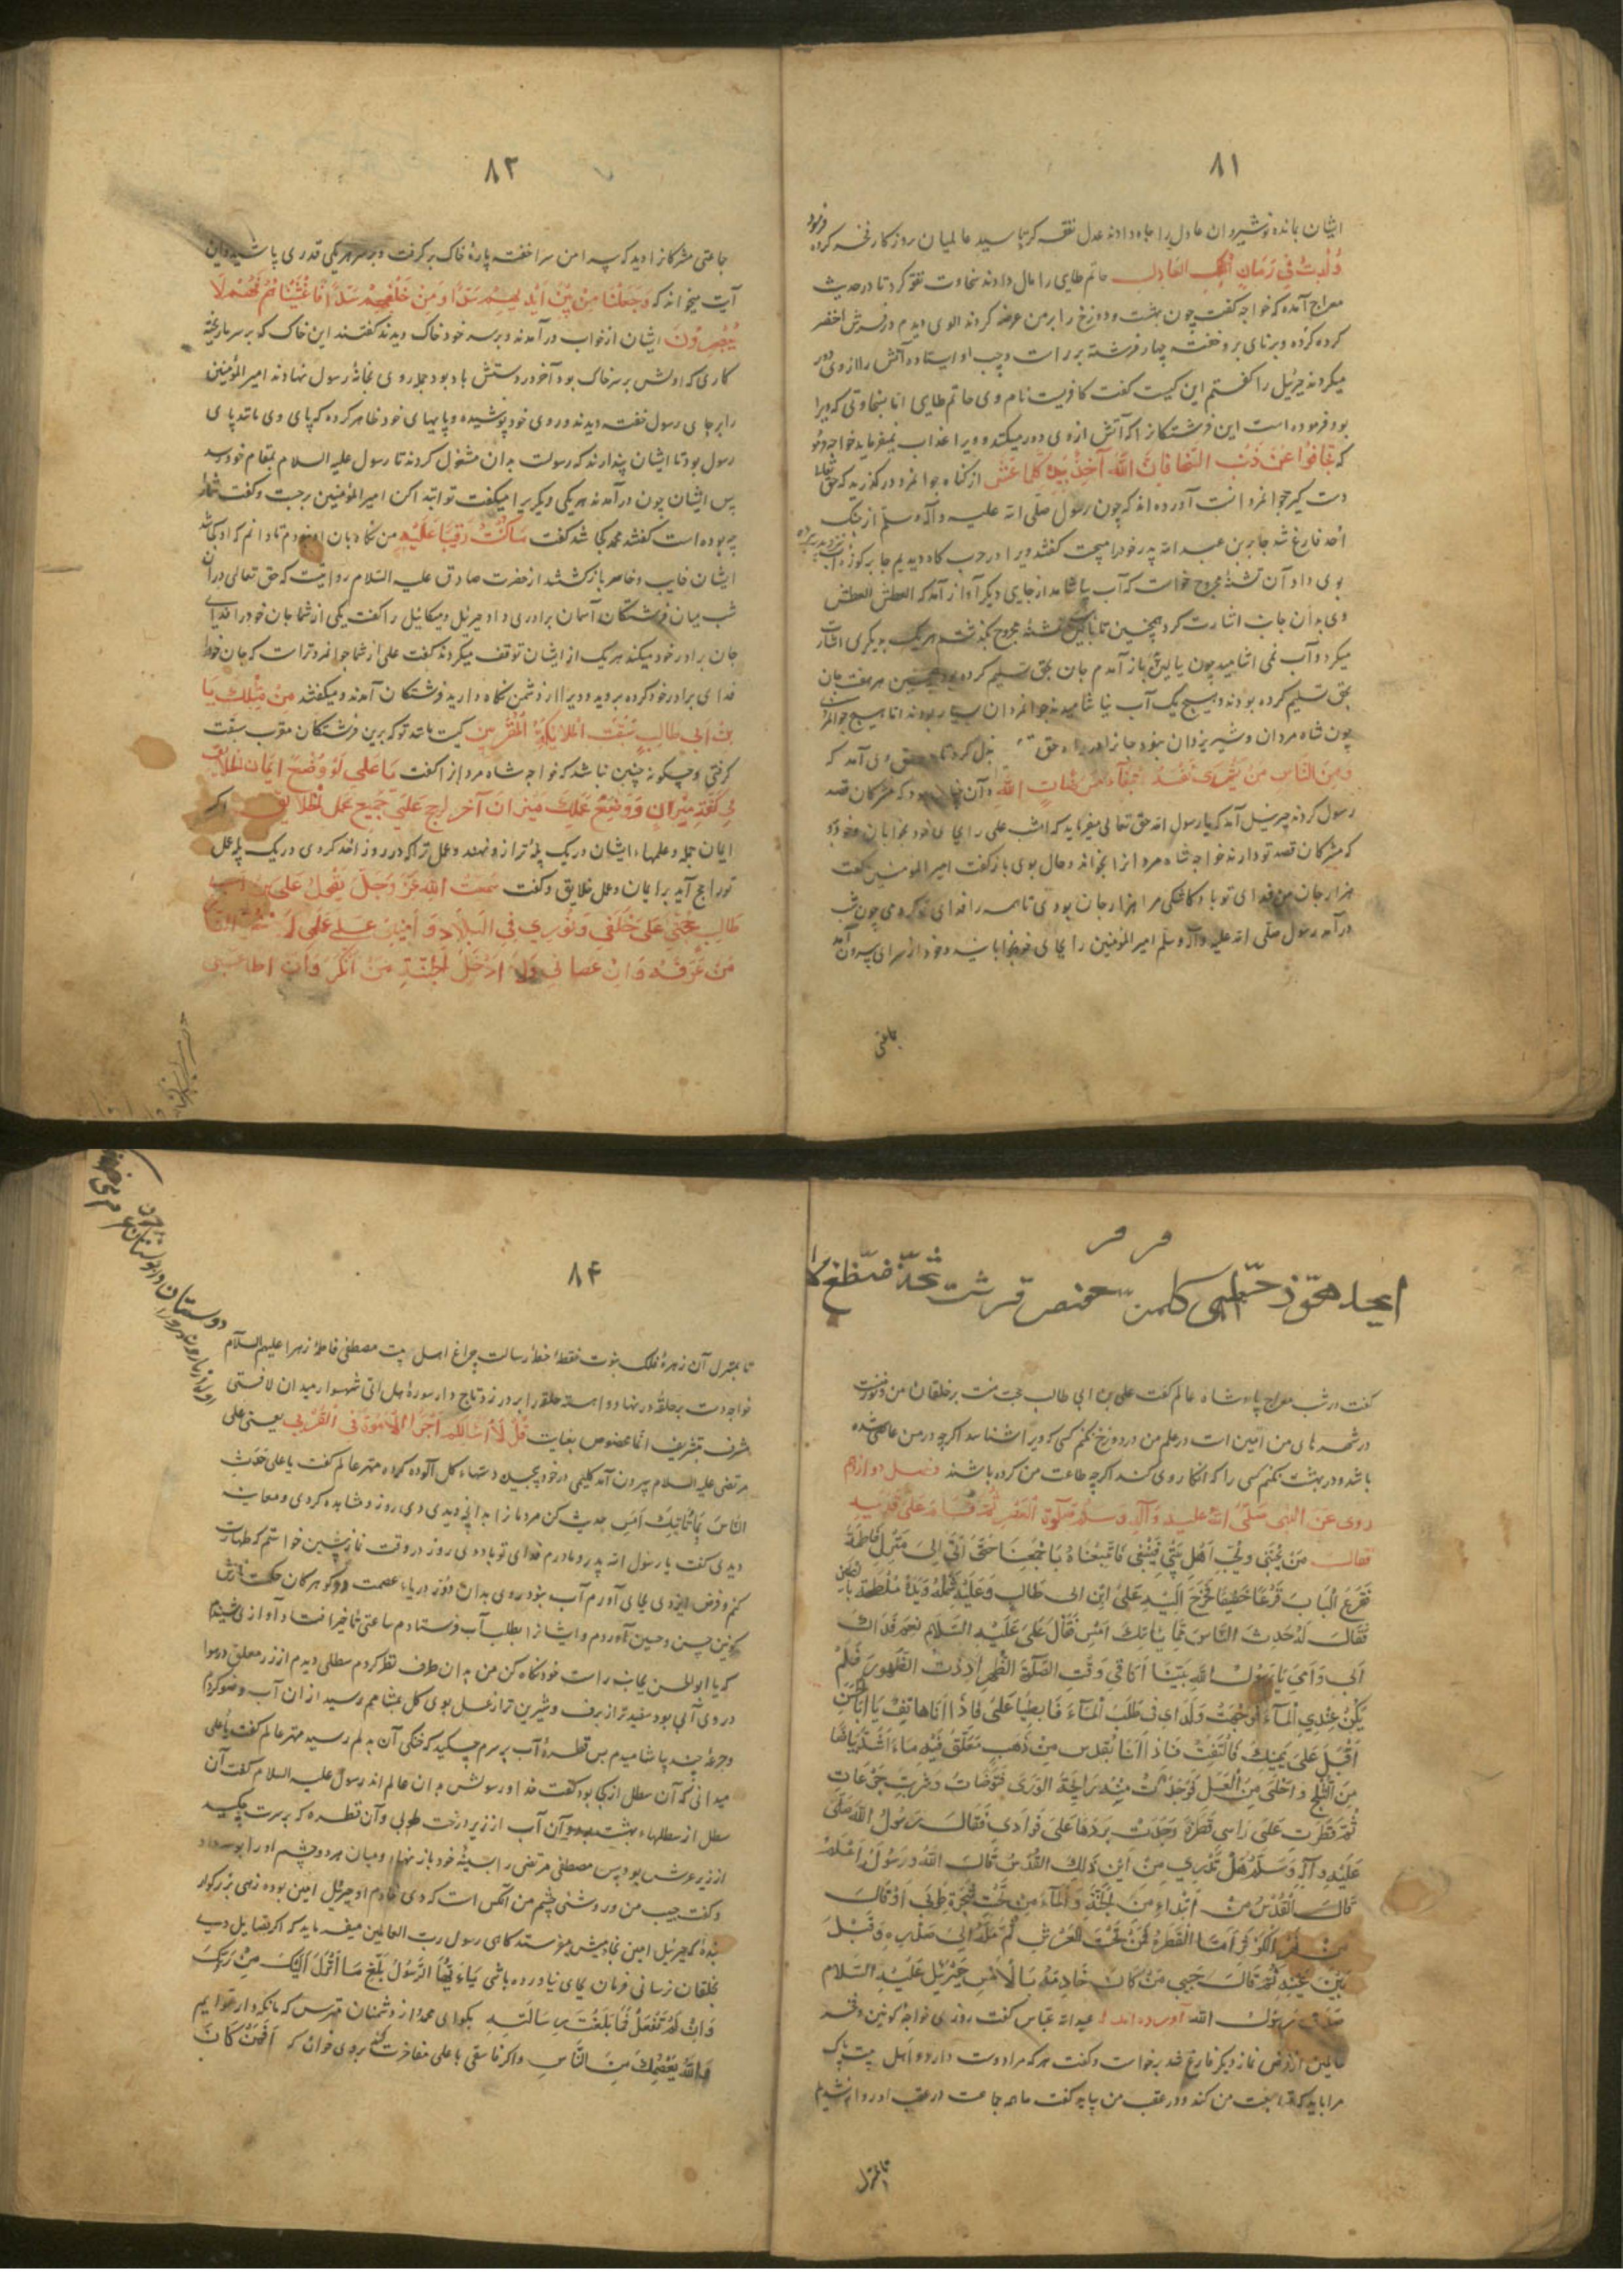 ۸۱
ایشان بمانده نوشیروان عادل را جاه دادند عدل نفقه کرد تا سید عالمیان بروزگار فخر کرده فرمود
وُلِدتُ فِي زَمَانِ المَلِكِ العَادِلِ حاتم طایی را مال دادند سخاوت نفقه کرد تا در حدیث
معراج آمده که خواجه گفت چون بهشت و دوزخ را بر من عرضه کردند الوی دیدم در فرش اخضر
کرده و برنای برو خفته چهار فرشته بر راست و چپ او ایستاده آتش را از وی دور
میکردند جبرئیل را گفتم این کیست گفت کافریست نام وی حاتم طایی اما بسخاوتی که ویرا
بود فرموده است این فرشتکانرا که آتش ازوی دور میکنند و ویرا عذاب نمیفرماید خواجه فرمود
که تَجَافَوْا عَنْ ذَنْبِ السَّخِيِّ فَإِنَّ اللهَ آخِذٌ بِيَدِهِ كُلَّمَا عَثَرَ از کناه جوانمرد درگذرید که حق تعالی
دست گیر جوانمردانست آورده اند که چون رسول صلی الله علیه وآله وسلم از جنگ
احد فارغ شد جابر بن عبد الله پدر خود را میجست گفتند ویرا در حرب کاه دیدیم جابر کوزه آب
بوی داد آن تشنه مجروح خواست که آب بیاشامد از جای دیگر آواز آمد که العطش العطش
وی بدان جانب اشارت کرد همچنین تا بایکی تشنه مجروح بگذشت هر یک بدیگری اشارت
میکرد و آب نمی اشامید چون ببالین باز آمدم جان بحق تسلیم کرده بود همچنین هر هفت جان
بحق تسلیم کرده بودند و هیچ یک آب نیاشامیدند جوانمردان بسیار بودند اما هیچ جوانمرد
چون شاه مردان و شیر یزدان نبود جانرا در راه حق بذل کرد تا در حق وی آمد که
وَمِنَ النَّاسِ مَنْ يَشْرِي نَفْسَهُ ابْتِغَاءَ مَرْضَاتِ اللهِ و آن چنان بود که مشرکان قصد
رسول کردند جبرئیل آمد که یا رسول الله حق تعالی میفرماید که امشب علی را بجای خود بخوابان و خود برو
که مشرکان قصد تو دارند خواجه شاه مردانرا بخواند و حال بوی بازگفت امیر المؤمنین گفت
هزار جان من فدای تو باد کاشکی مرا هزار جان بودی تا همه را فدای تو کردمی چون شب
درآمد رسول صلی الله علیه وآله وسلم امیر المؤمنین را بجای خود بخوابانید و خود از سرای بیرون آمد
جماعتی
۸۲
جماعتی مشرکانرا دید که پیرامن سرا خفته پارهٔ خاک برگرفت و بر سر هر یکی قدری پاشید و این
آیت میخواند که وَجَعَلْنَا مِنْ بَيْنِ أَيْدِيهِمْ سَدًّا وَمِنْ خَلْفِهِمْ سَدًّا فَأَغْشَيْنَاهُمْ فَهُمْ لَا
يُبْصِرُونَ ایشان از خواب درآمدند و بر سر خود خاک دیدند گفتند این خاک که بر سر ما ریخته
کاری که اولش بر سر خاک بود آخر در دستش باد بود جمله روی بخانهٔ رسول نهادند امیر المؤمنین
را بر جای رسول خفته دیدند و روی خود پوشیده و پایهای خود ظاهر کرده که پای وی مانند پای
رسول بود تا ایشان پندارند که رسولست بدان مشغول گردند تا رسول علیه السلام بمقام خود رسد
پس ایشان چون درآمدند هر یکی دیگریرا میگفت تو ابتدا کن امیر المؤمنین برجست و گفت شما را
چه بوده است گفتند محمد کجا شد گفت مَا كُنْتُ رَقِيبًا عَلَيْهِ من نکاه بان او نبودم تا دانم که او کجا شد
ایشان خایب و خاسر بازگشتند از حضرت صادق علیه السلام روایتست که حق تعالی در آن
شب میان فرشتکان آسمان برادری داد جبرئیل و میکائیل را گفت یکی از شما جان خود را فدای
جان برادر خود میکند هر یک از ایشان توقف میکردند گفت علی از شما جوانمردتر است که جان خود را
فدای برادر خود کرده بروید و ویرا از دشمن نکاه دارید فرشتکان آمدند و میگفتند مَنْ مِثْلُكَ يَا
بْنَ أَبِي طَالِبٍ سَبَقْتَ الْمَلَائِكَةَ الْمُقَرَّبِينَ کیست مانند تو که برین فرشتکان مقرب سبقت
گرفتی و چگونه چنین نباشد که خواجه شاه مردانرا گفت يَا عَلِي لَوْ وُضِعَ إِيمَانُ الْخَلَائِقِ
فِي كَفَّةِ مِيزَانٍ وَوُضِعَ عَمَلُكَ مِيزَانَ آخَرَ لَرَجَحَ عَلَى جَمِيعِ عَمَلِ الْخَلَائِقِ اگر
ایمان جمله و عملهاء ایشان در یک پلهٔ ترازو نهند و عمل ترا که در روز احد کردی در یک پله عمل
تو راجح آید بر ایمان و عمل خلایق و گفت سَمِعْتُ اللهَ عَزَّ وَجَلَّ يَقُولُ عَلِيُّ بْنُ أَبِي
طَالِبٍ حُجَّتِي عَلَى خَلْقِي وَنُورِي فِي الْبِلَادِ وَأَمِينِي عَلَى عِلْمِي لَا أُدْخِلُ النَّارَ
مَنْ عَرَفَهُ وَإِنْ عَصَانِي وَلَا أُدْخِلُ الْجَنَّةَ مَنْ أَنْكَرَهُ وَإِنْ أَطَاعَنِي
ابجد هوز حطی کلمن سعفص قرشت ثخذ ضظغ لا
گفت در شب معراج پادشاه عالم گفت علی بن ابی طالب حجت منست بر خلقان من و نور منست
در شهرهای من و امین است در علم من در دوزخ نکنم کسی که ویرا شناسد اگرچه در من عاصی شده
باشد و در بهشت نکنم کسی را که انکار وی کند اگرچه طاعت من کرده باشند فصل دوازدهم
روى عن النبى صلى الله عليه وآله وسلم صلوة العصر ثم قام على قدميه
فقال من يحبنى ويحب اهل بيتى فليتبعنى فاتبعناه باجمعنا حتى اتى الى منزل فاطمة
فقرع الباب قرعا خفيفا فخرج اليه على ابن ابى طالب وعليه شملة ويده ملطخة بالطين
فقال له حدث الناس بما رايتك امس فقال على عليه السلام نعم فداك
ابى وامى يا رسول الله بينا انا فى وقت الصلوة الظهر اردت الطهور فلم
يكن عندى الماء فوجهت ولداى فى طلب الماء فابطيا على فاذا انا هاتف يا ابا الحسن
اقبل على يمينك فالتفت فاذا انا بقدس من ذهب معلق فيه ماء اشد بياضا
من الثلج واحلى من العسل فوجدت منه رايحة الورد فتوضات وشربت جرعات
ثم قطرت على راسى قطرة وجدت بردها على فوادى فقال رسول الله صلى
عليه وآله وسلم هل تدرى من اين ذلك القدس قال الله ورسوله اعلم
قال القدس من اقداس الجنة والماء من تحت شجرة طوبى او قال
من نهر الكوثر واما القطرة فمن تحت العرش ثم ضمه الى صدره وقبل
بين عينيه ثم قال حبيبى من كان خادمه بالامس جبرئيل عليه السلام
صدق رسول الله آورده اند که عبدالله عباس گفت روزی خواجهٔ کونین و فخر
عالمین از فرض نماز دیگر فارغ شد برخاست و گفت هر که مرا دوست دارد و اهل بیت پاک
مرا باید که متابعت من کند و در عقب من بیاید گفت ما همه جماعت در عقب او روانه شدیم
تا بمنزل
۸۴
تا بمنزل آن زهرهٔ فلک نبوت نقطهٔ خط رسالت چراغ اهل بیت مصطفی فاطمهٔ زهرا علیهم السلام
خواجه دست بر حلقهٔ در نهاد و آهسته حلقه را بر در زد تاج دار سورهٔ هل اتی شهسوار میدان لافتی
مشرف بتشریف انما مخصوص بغایت قُلْ لَا أَسْأَلُكُمْ أَجْرًا إِلَّا الْمَوَدَّةَ فِي الْقُرْبَى یعنی علی
مرتضی علیه السلام بیرون آمد گلیمی در خود پیچیده و دستهاء گل آلوده کرده مهتر عالم گفت یا علی حدث
الناس بما رایتک امس حدیث کن مردمانرا بدانچ دیدی دی روز و مشاهده کردی و معاینه
دیدی گفت یا رسول الله پدر و مادرم فدای تو باد دی روز در وقت نماز پیشین خواستم که طهارت
کنم و فرض ایزدی بجای آورم آب نبود روی بدان دو در دریاء عصمت و دو گوهر کان حکمت
کونین حسن و حسین آوردم و ایشانرا بطلب آب فرستادم ساعتی تاخیر افتاد آوازی شنیدم
که یا ابو الحسن بجانب راست خود نگاه کن من بدان طرف نظر کردم سطلی دیدم از زر معلق در هوا
در وی آبی بود سفیدتر از برف و شیرین تر از عسل بوی گل بمشامم رسید از آن آب وضو کردم
و جرعهٔ چند بیاشامیدم پس قطرهٔ آب بر سرم چکید که خنکی آن بدلم رسید مهتر عالم گفت یا علی
میدانی که آن سطل از کجا بود گفت خدا و رسولش بدان عالم اند رسول علیه السلام گفت آن
سطل از سطلهاء بهشت بود و آن آب از زیر درخت طوبی و آن قطره که بر سرت چکید
از زیر عرش بود پس مصطفی مرتضی را بسینهٔ خود باز نهاد و میان هر دو چشم او را بوسه داد
و گفت حبیب من و روشنی چشم من آنکس است که دی خادم او جبرئیل امین بوده زهی بزرگوار
بندهٔ که جبرئیل امین بخادمیش میفرستد گاهی رسول رب العالمین میفرماید که اگر فضایل وی
بخلقان نرسانی فرمان بجای نیاورده باشی يَا أَيُّهَا الرَّسُولُ بَلِّغْ مَا أُنْزِلَ إِلَيْكَ مِنْ رَبِّكَ
وَإِنْ لَمْ تَفْعَلْ فَمَا بَلَّغْتَ رِسَالَتَهُ بگو ای محمد و از دشمنان مترس که ما نگه دار توایم
وَاللهُ يَعْصِمُكَ مِنَ النَّاسِ و اگر فاسقی با علی مفاخرت کند بروی خوان که أَفَمَنْ كَانَ